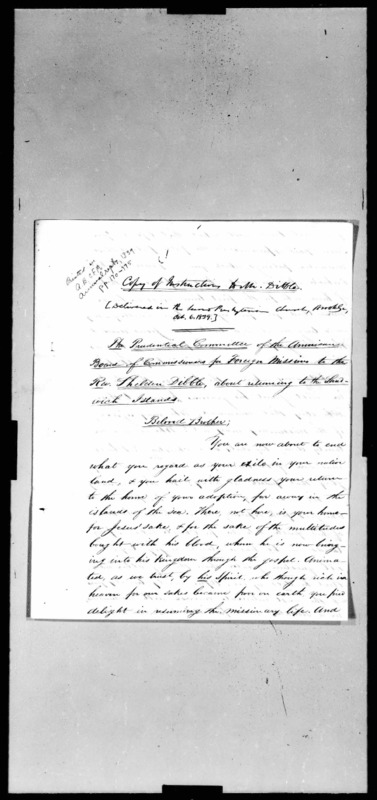 Printed in
A.B.C.F.M.
Annual rept, 1839
pp. 140-145
Copy of Instructions to Mr. Dibble.
[Delivered in the Presbyterian church, Brooklyn,
Oct. 6. 1839.]
The Prudential Committee of the American
Board of Commissioners for Foreign Missions to the
Rev. Sheldon Dibble, about returning to the Sand-
wich Islands.
Beloved Brother;
You are now about to end
what you regard as your exile in your native
land, & you hail with gladness your return
to the home of your adoption, far away in the
islands of the sea. There, not here, is your home
for Jesus' sake, & for the sake of the multitudes
bought with his blood, whom he is now bring-
ing into his kingdom through the gospel. Anima-
ted, as we trust, by his Spirit, who though rich in
heaven for our sakes became poor on earth, you find
delight in resuming the missionary life. And